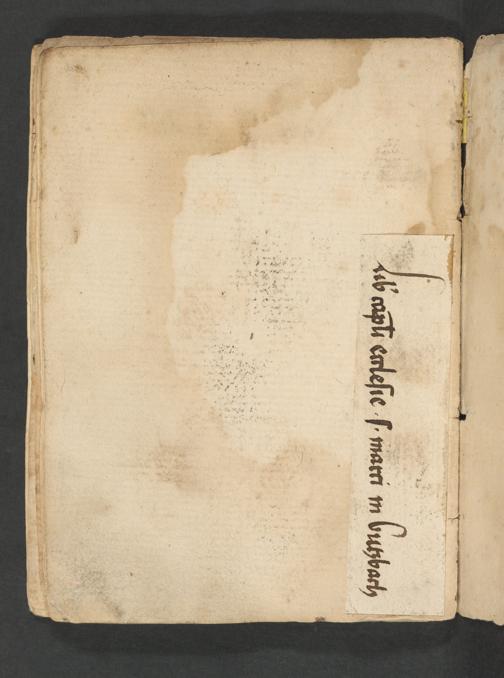 lib' capti ecclesie . s . marci in butzbach